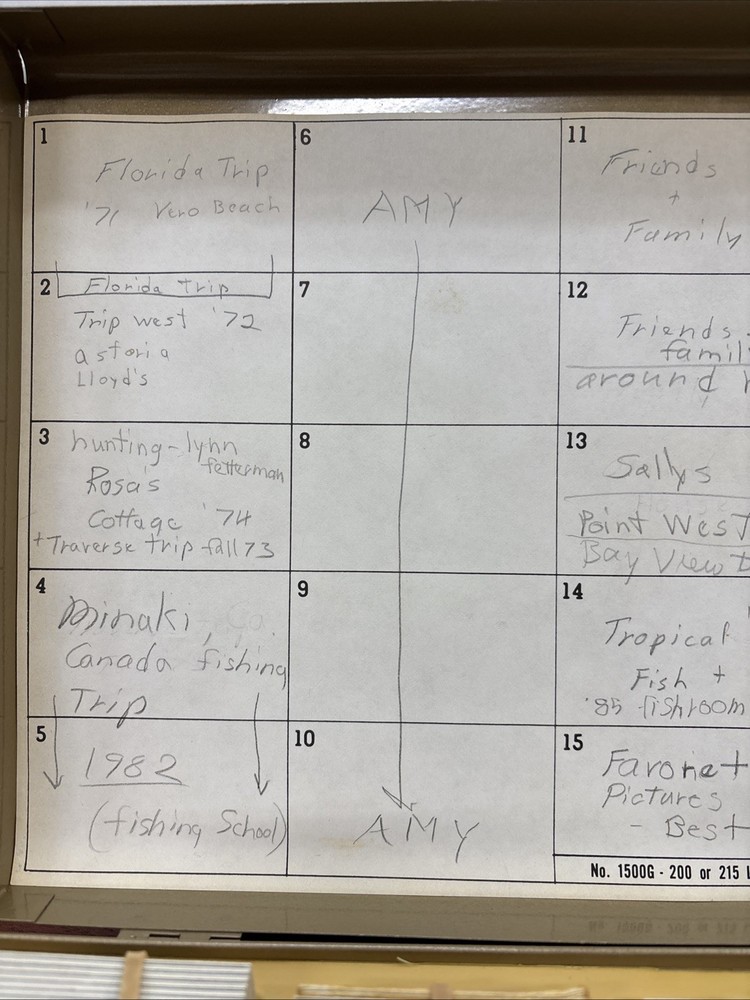 1
Florida Trip
'71 Vero Beach
2
Florida Trip
Trip west '72
astoria
Lloyd's
3
hunting-lynn
fetterman
Rosa's
Cottage '74
+Traverse trip fall 73
4
Minaki,
Canada fishing
Trip
5
1982
(fishing School)
6
AMY
7
8
9
10
AMY
11
Friends
+
Family
12
Friends
famil
around
13
Sallys
Point West
Bay View
14
Tropical
Fish +
'85 fishroom
15
Favoret
Pictures
- Best
No. 1500G - 200 or 215